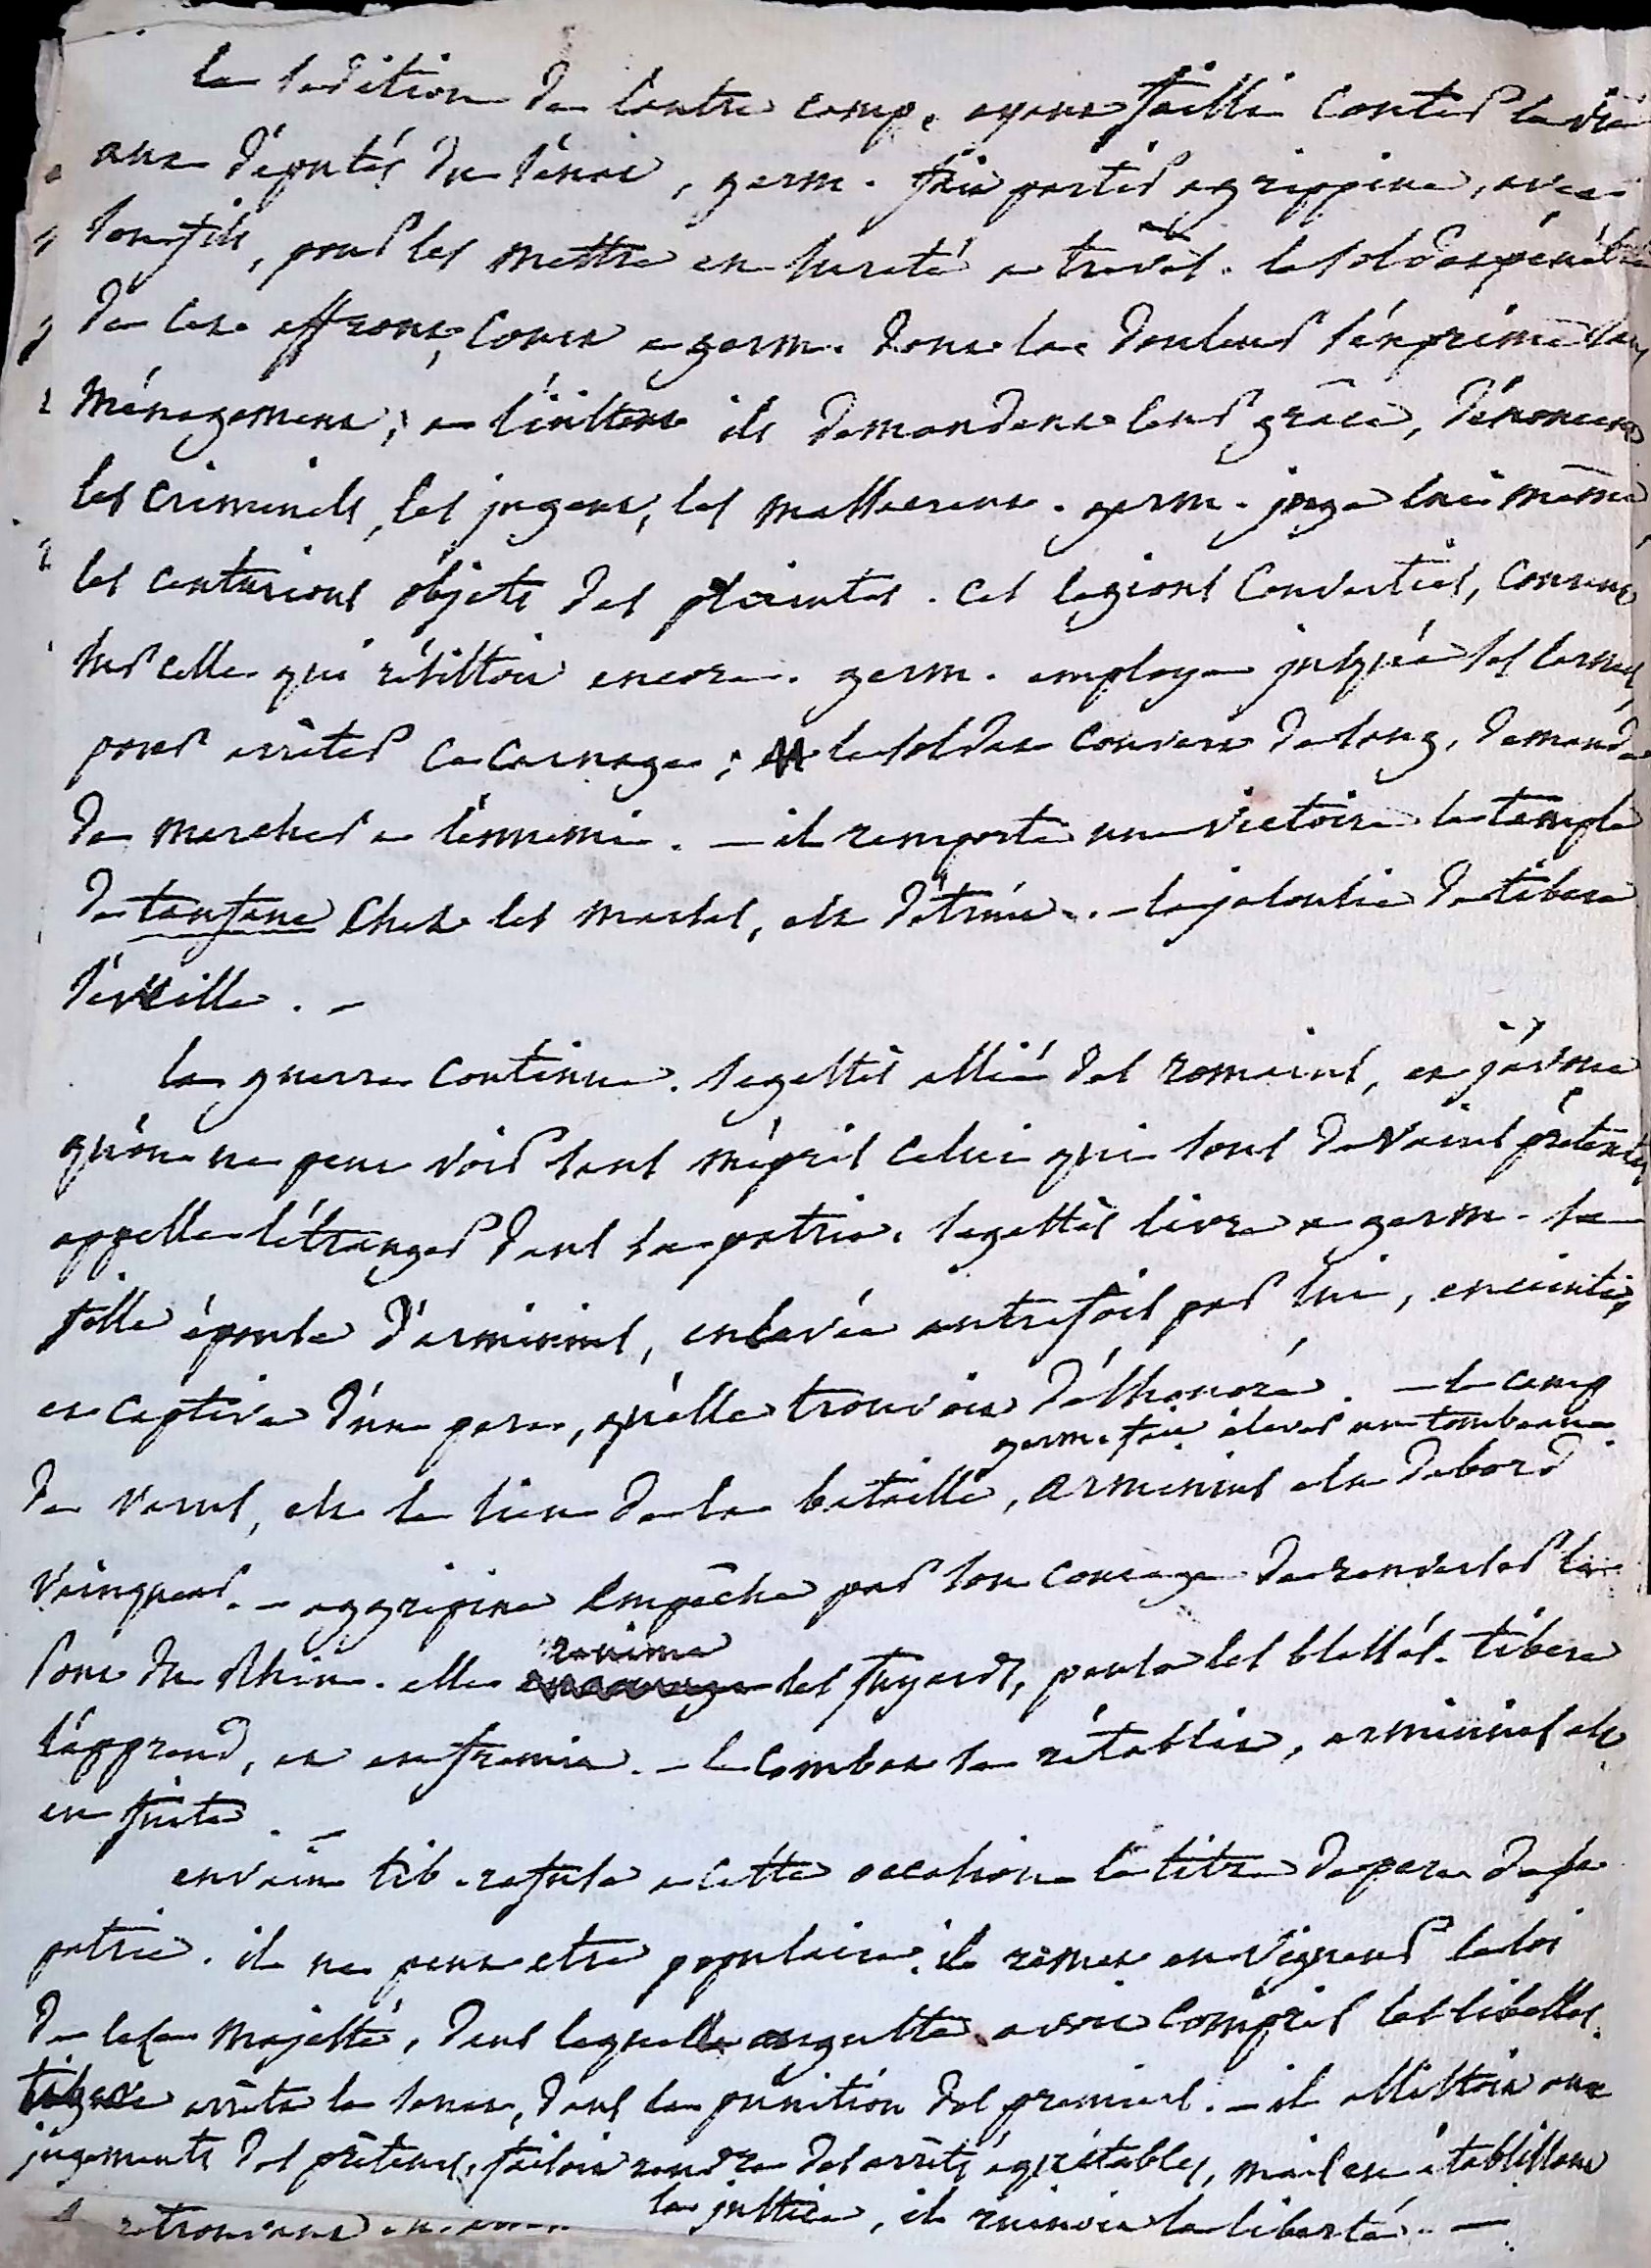 la sédition de l'autre camp, ayant failli couter la vie
aux députés du sénat, germ. fait partir agrippine, avec
son fils, pour les mettre en sureté a trèves. le soldat pénétré
de cet affront, court a germ. dont la douleur s'exprime sans
ménagement; a l'instant ils demandent leur grâce, dénoncent
les criminels, les jugent, les massacrent. germ. juge lui même
les centurions objets des plaintes. ces légions converties, courent
sur celle qui résistoit encore. germ. employe jusqu'à ses larmes
pour arrêter ce carnage; le soldat couvert de sang, demande
de marcher a l'ennemi. — il remporte une victoire le temple
de tanfane chez les marses, est détruit. — la jalousie de tibere
s'éveille. —
la guerre continue. segestès allié des romains, est jugé
qu'on ne peut voir sans mépris celui qui sous de vains prétextes
appelle l'étranger dans sa patrie. segestès livre a germ. sa
fille épouse d'arminius, enlevée autrefois par lui, enceinte,
et captive d'un pere, qu'elle trouvoit déshonoré. — le camp
germ. fait élever un tombeau
de varus, est le lieu de la bataille, arminius est d'abord
vainqueur. — aggripine empêche par son courage de renverser le
pont du Rhin. elle ranime les fuyards, panse les blessés. tibere
l'apprend, et en frémit. — le combat se rétablit, arminius est
en fuite. —
envain tib. refuse a cette occasion le titre de pere de la
patrie. il ne peut etre populaire. il remet en vigueur la loi
de leze majesté, dans laquelle auguste avoit compris les libelles.
tibere arrête le sénat, dans la punition des premiers. — il assistoit aux
jugements des préteurs, faisoit rendre des arrêts équitables, mais en établissant
la justice, il ruinoit la liberté. —